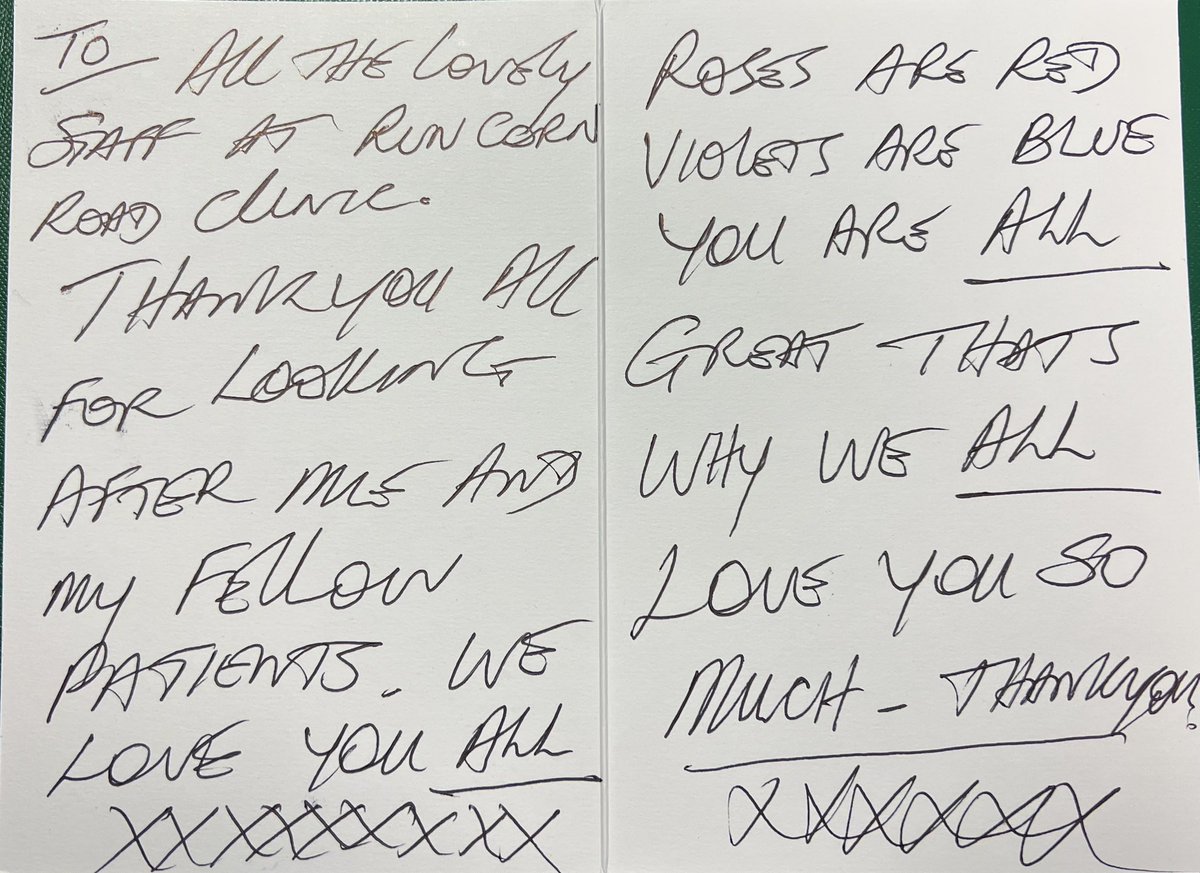 TO ALL THE LOVELY
STAFF AT RUNCORN
ROAD CLINIC.
THANKYOU ALL
FOR LOOKING
AFTER ME AND
MY FELLOW
PATIENTS. WE
LOVE YOU ALL
XXXXXXXXX
ROSES ARE RED
VIOLETS ARE BLUE
YOU ARE ALL
GREAT THATS
WHY WE ALL
LOVE YOU SO
MUCH - THANKYOU!
XXXXXX